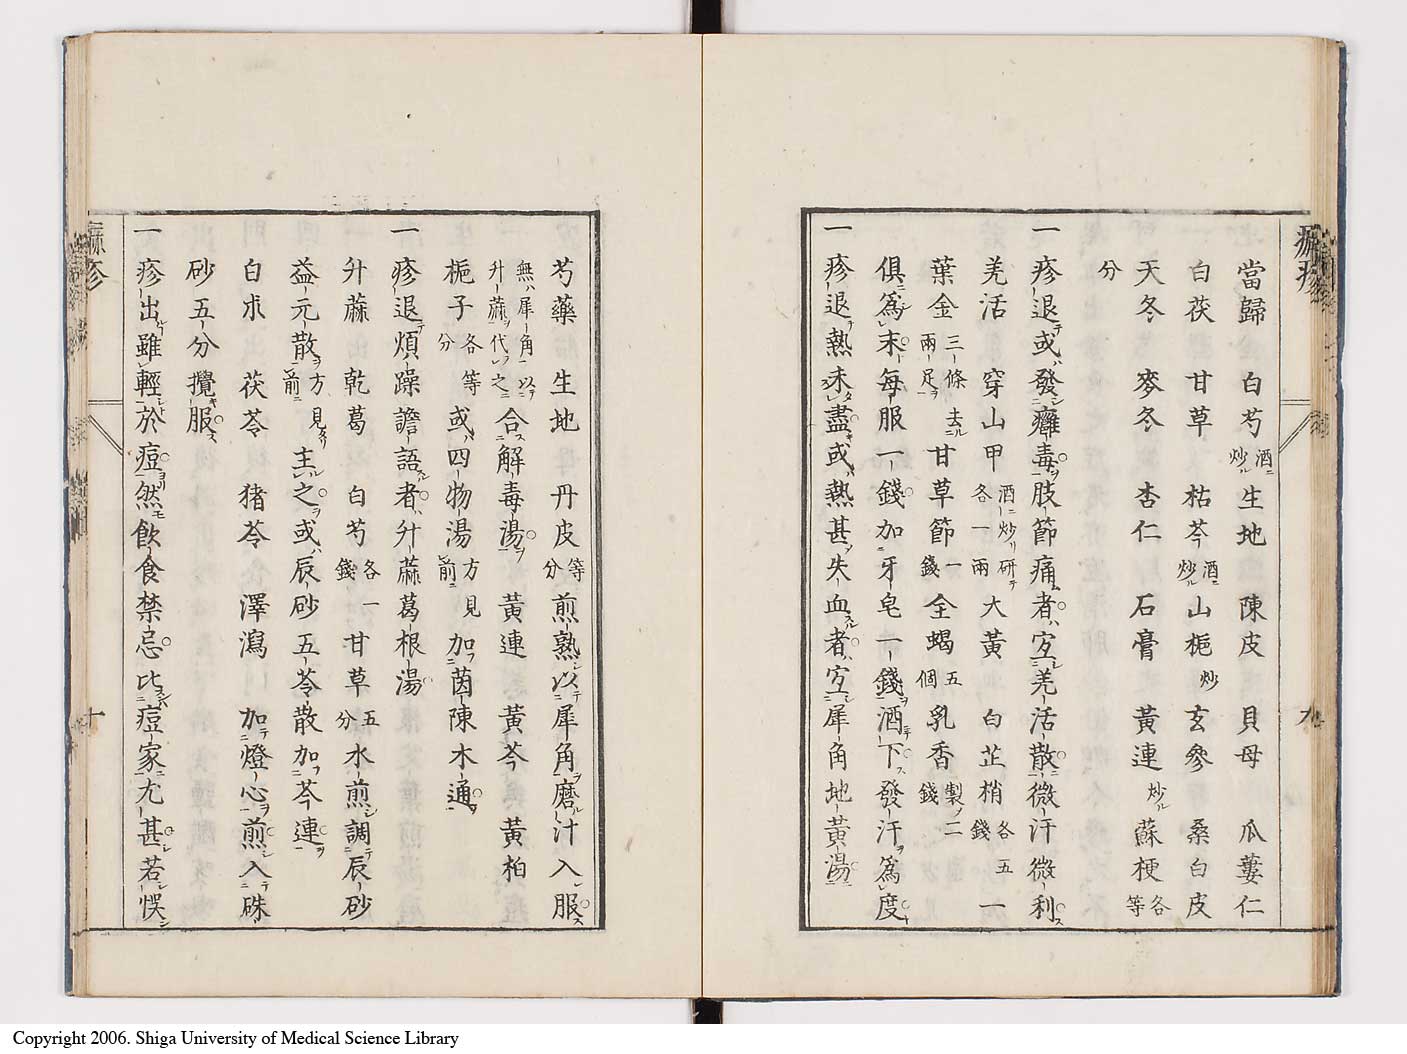 當歸 白芍酒ニ炒ル 生地 陳皮 貝母 瓜蔞仁
白茯 甘草 枯芩酒ニ炒ル 山梔炒 玄參 桑白皮
天冬 麥冬 杏仁 石膏 黃連炒ル 蘇梗各等
分
一 疹退或發癰毒肢節痛者宜羌活散微汗微利
羌活 穿山甲酒ニ炒リ研各一兩 大黃 白芷梢各五錢 一
葉金三條去ル兩足ヲ 甘草節一錢 全蝎五個 乳香製二錢
俱爲末每服一錢加牙皂一錢酒下發汗爲度
一 疹退熱未盡或熱甚失血者宜犀角地黃湯
芍藥 生地 丹皮等分 煎熟以犀角磨汁入服
無犀角以升蔴代之 合解毒湯 黃連 黃芩 黃柏
梔子各等分 或四物湯方見前 加茵陳木通
一 疹退煩躁譫語者升蔴葛根湯
升蔴 乾葛 白芍各一錢 甘草五分 水煎調辰砂
益元散方見前 主之或辰砂五苓散加芩連
白朮 茯苓 猪苓 澤瀉 加燈心煎入硃
砂五分攪服
一 疹出雖輕於痘然飲食禁忌比痘家尤甚若悞
痲疹
九
痲疹
十
Copyright 2006. Shiga University of Medical Science Library